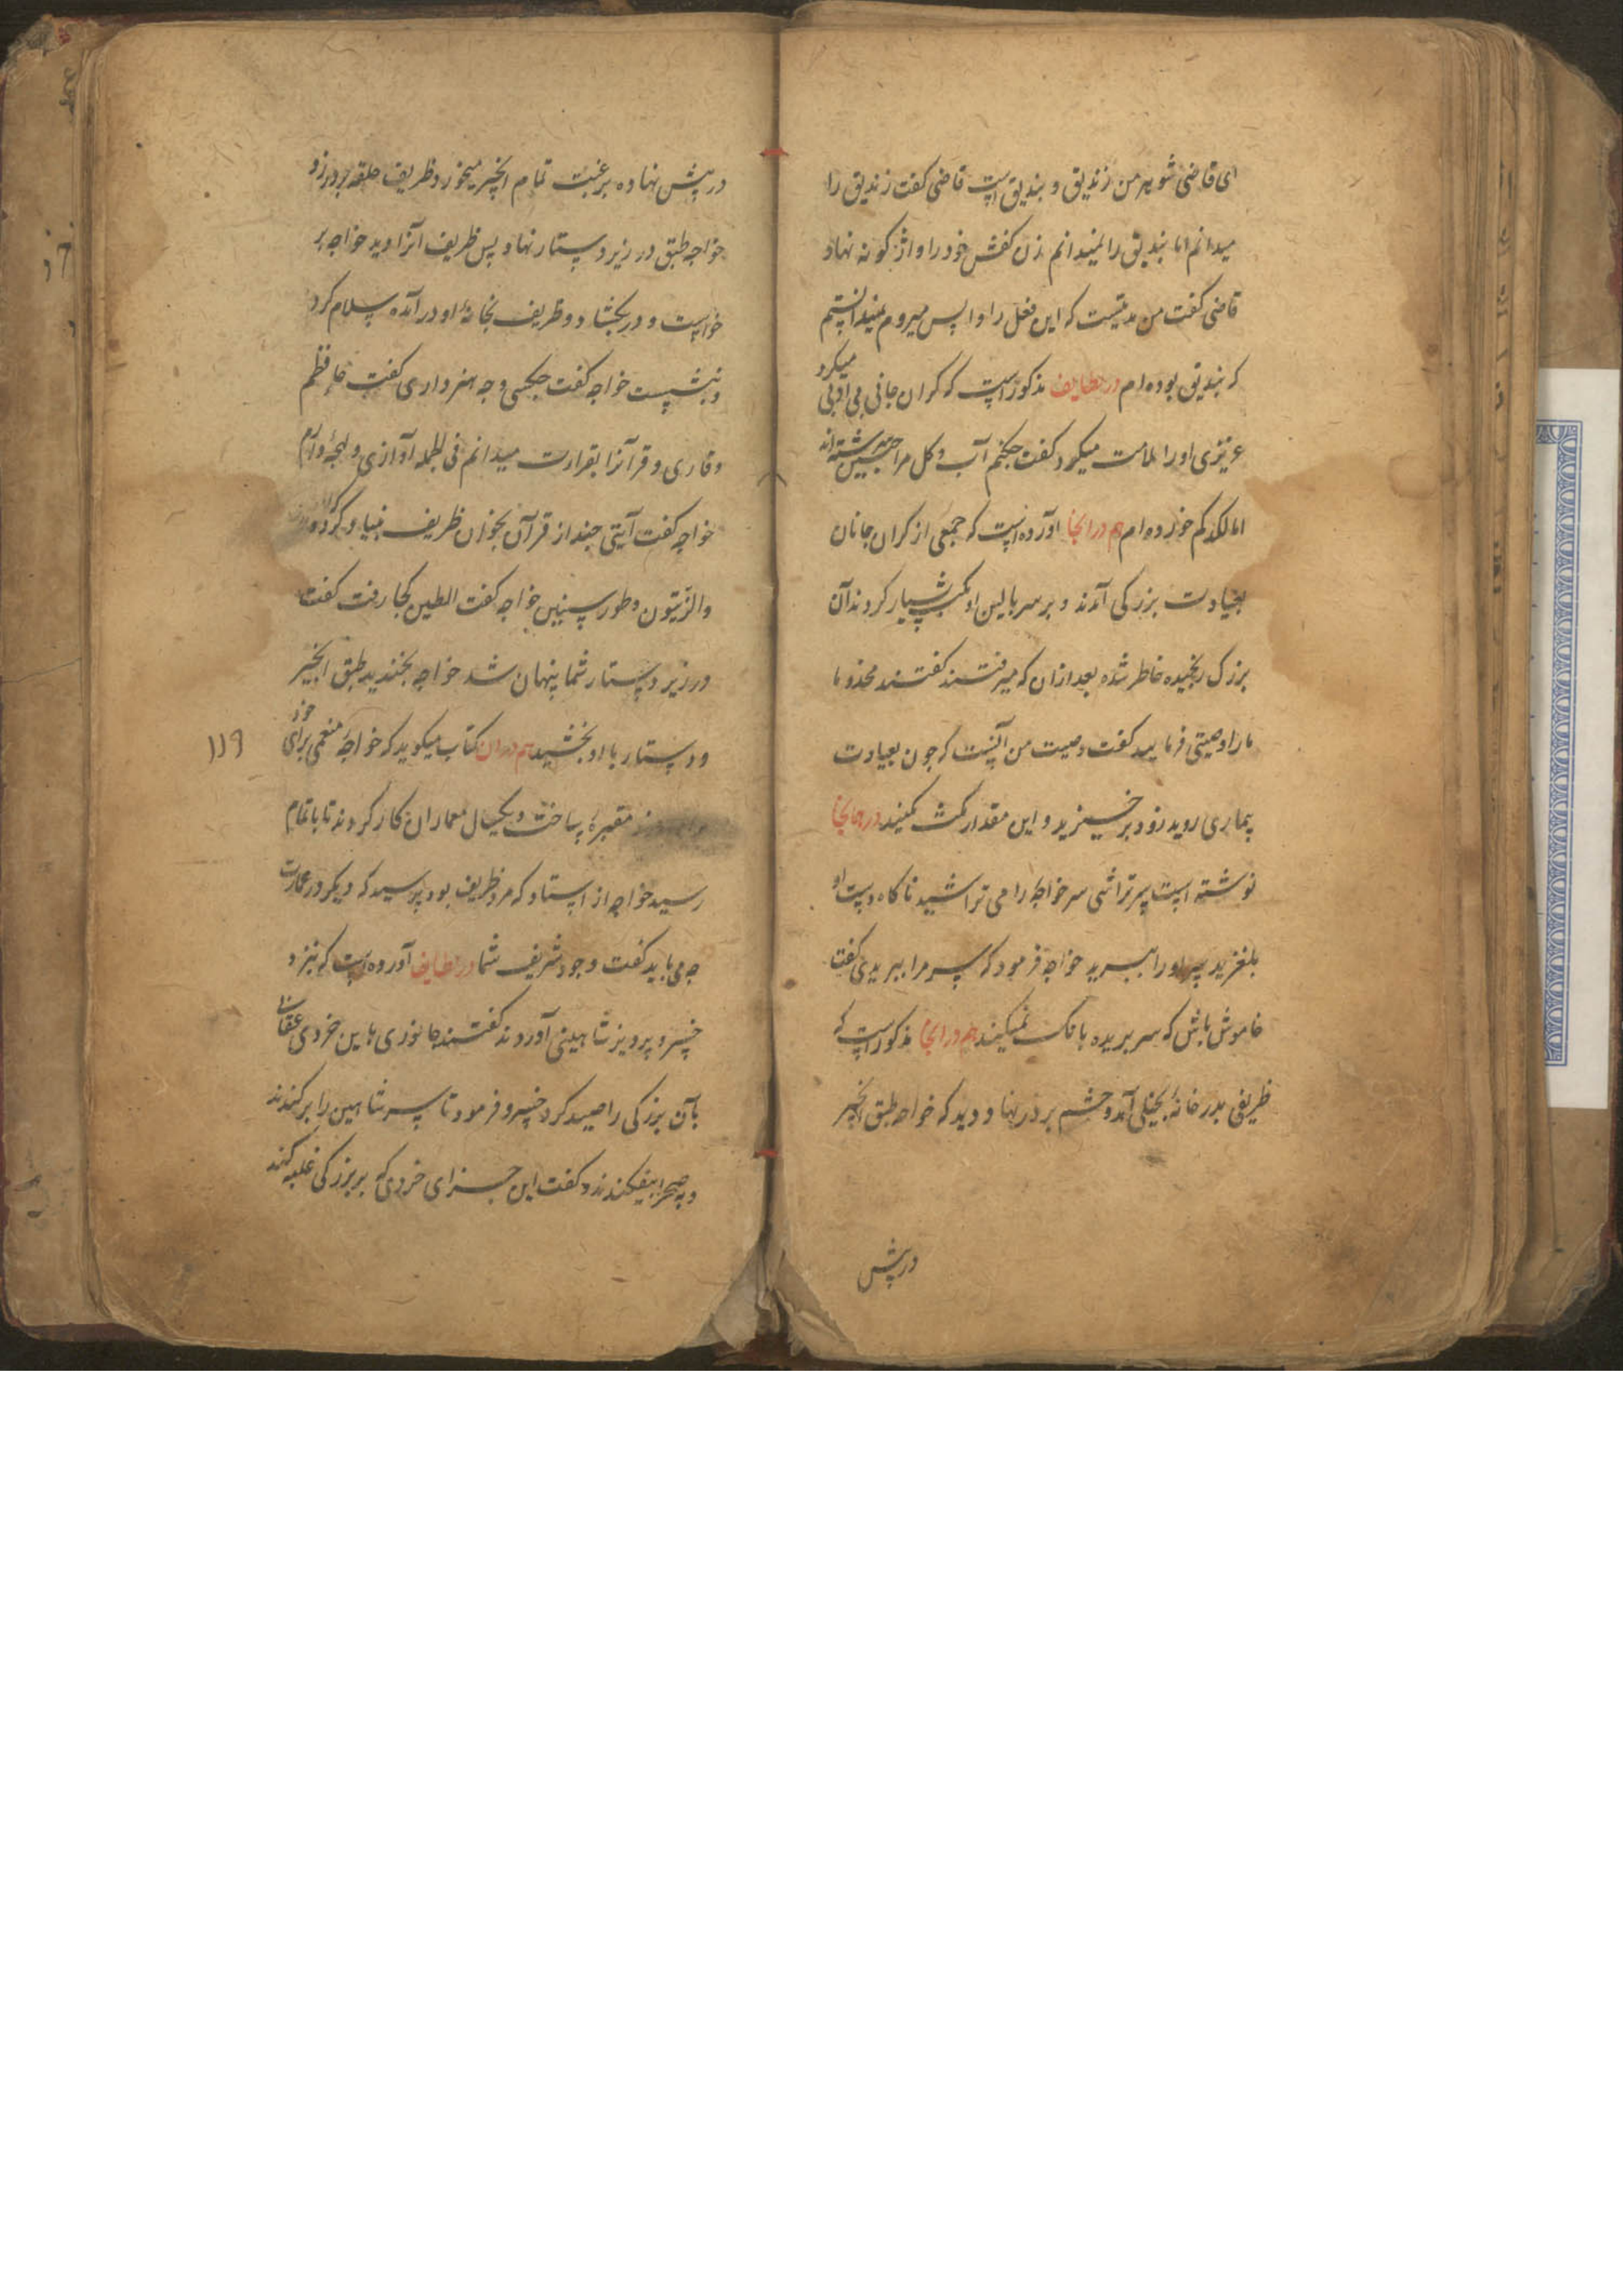 ای قاضی شوهر من زندیق و بندیق است قاضی کفت زندیق را
میدانم اما بندیق را نمیدانم زن کفش خود را واژکونه نهاد
قاضی کفت من مدتیست که این فعل را وا پس میروم نمیدانستم
که بندیق بوده ام در لطایف مذکور است که کران جانی بی ادبی میکرد
عزیزی او را ملامت میکرد کفت چکنم آب و کل مرا چنین سرشته اند
اما لکد کم خورده ام هم در انجا آورده است که جمعی از کران جانان
بعیادت بزرکی آمدند و بر سر بالین او مکث بسیار کردند آن
بزرک رنجیده خاطر شده بعد ازان که میرفتند کفتند مخدوما
ما را وصیتی فرمایید کفت وصیت من آنست که چون بعیادت
بیماری روید زود برخیزید و این مقدار مکث نکنید در همانجا
نوشته است سر تراشی سر خواجه را می تراشید ناکاه دست او
بلغزید سر او را ببرید خواجه فرمود که سر مرا ببریدی کفت
خاموش باش که سر بریده بانک نمیکند هم در انجا مذکور است که
ظریفی بدر خانهٔ بخیلی آمد و چشم بر در نهاد و دید که خواجه طبق انجیر
در پیش
در پیش نهاده برغبت تمام انجیر میخورد ظریف حلقه بر در زد
خواجه طبق در زیر دستار نهاد پس ظریف آنرا دید خواجه بر
خواست و در بکشاد و ظریف بخانهٔ او در آمده سلام کرد
و بنشست خواجه کفت چکسی و چه هنر داری کفت حافظم
و قاری و قرآنرا بقراءت میدانم فی الجمله آوازی و لهجهٔ دارم
خواجه کفت آیتی چند از قرآن بخوان ظریف بنیاد کرده
والزیتون و طور سینین خواجه کفت التین کجا رفت کفت
در زیر دستار شما پنهان شد خواجه بخندید طبق انجیر
و دستار باو بخشید هم دران کتاب میکوید که خواجهٔ منعمی برای خود
مقبرهٔ ساخت و یکسال معماران کار کردند تا باتمام
رسید خواجه از استاد که مرد ظریف بود پرسید که دیکر در عمارت
چه می باید کفت وجود شریف شما در لطایف آورده است که بنزد
خسرو پرویز شاهینی آوردند کفتند جانوری باین خردی عقابی
بآن بزرکی را صید کرد خسرو فرمود تا سر شاهین را برکندند
و بصحرا بیفکندند و کفت این جزای خردی که بر بزرکی غلبه کند
۱۱۹